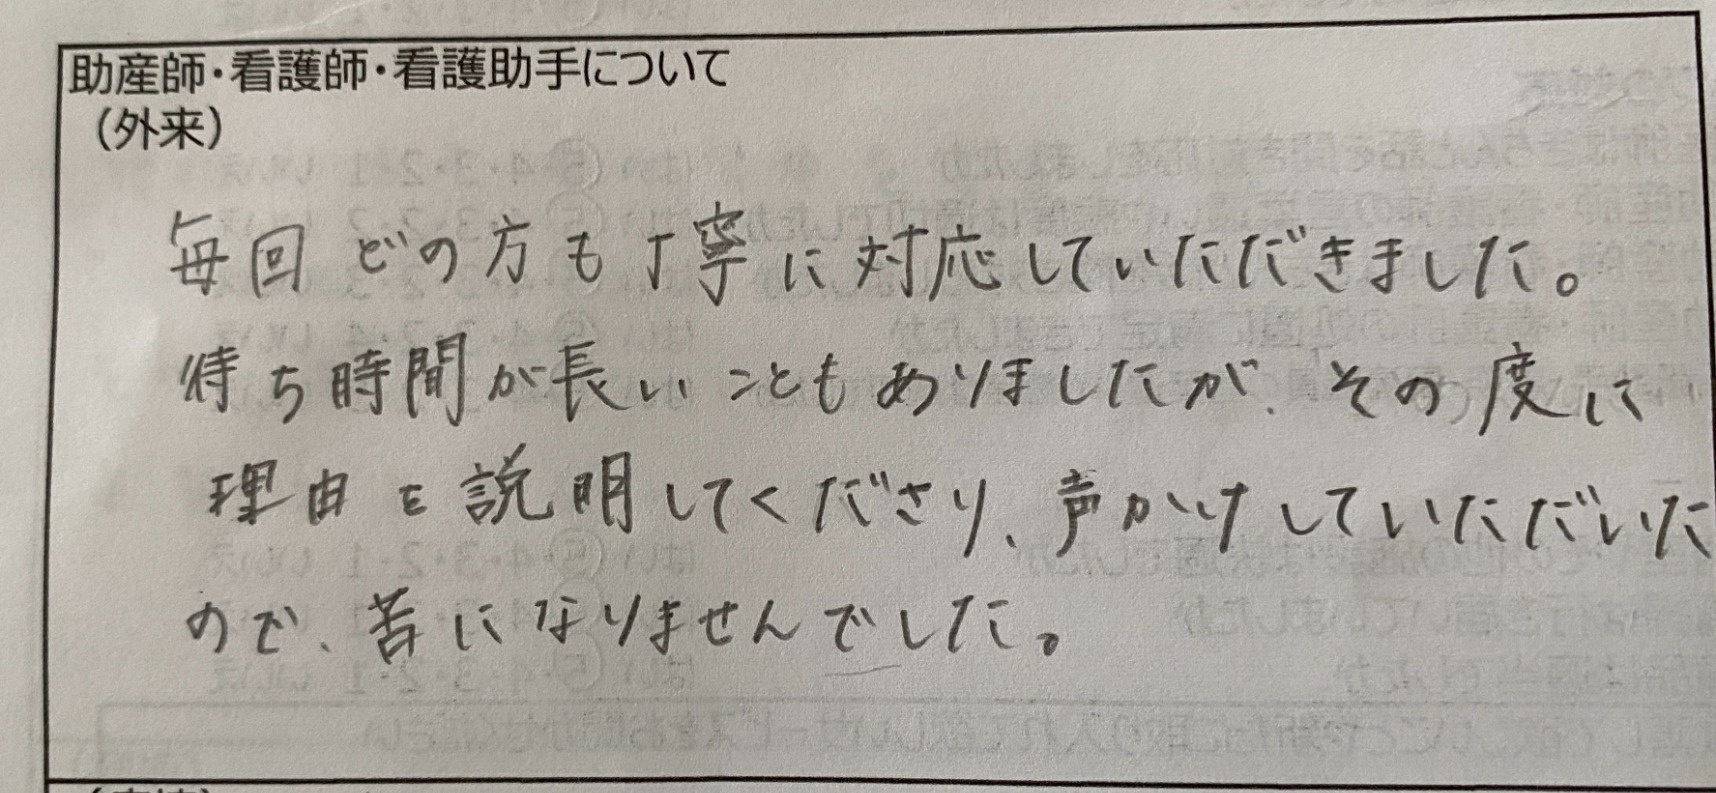 助産師・看護師・看護助手について
（外来）
毎回どの方も丁寧に対応していただきました。
待ち時間が長いこともありましたが、その度に
理由を説明してくださり、声かけしていただいた
ので、苦になりませんでした。